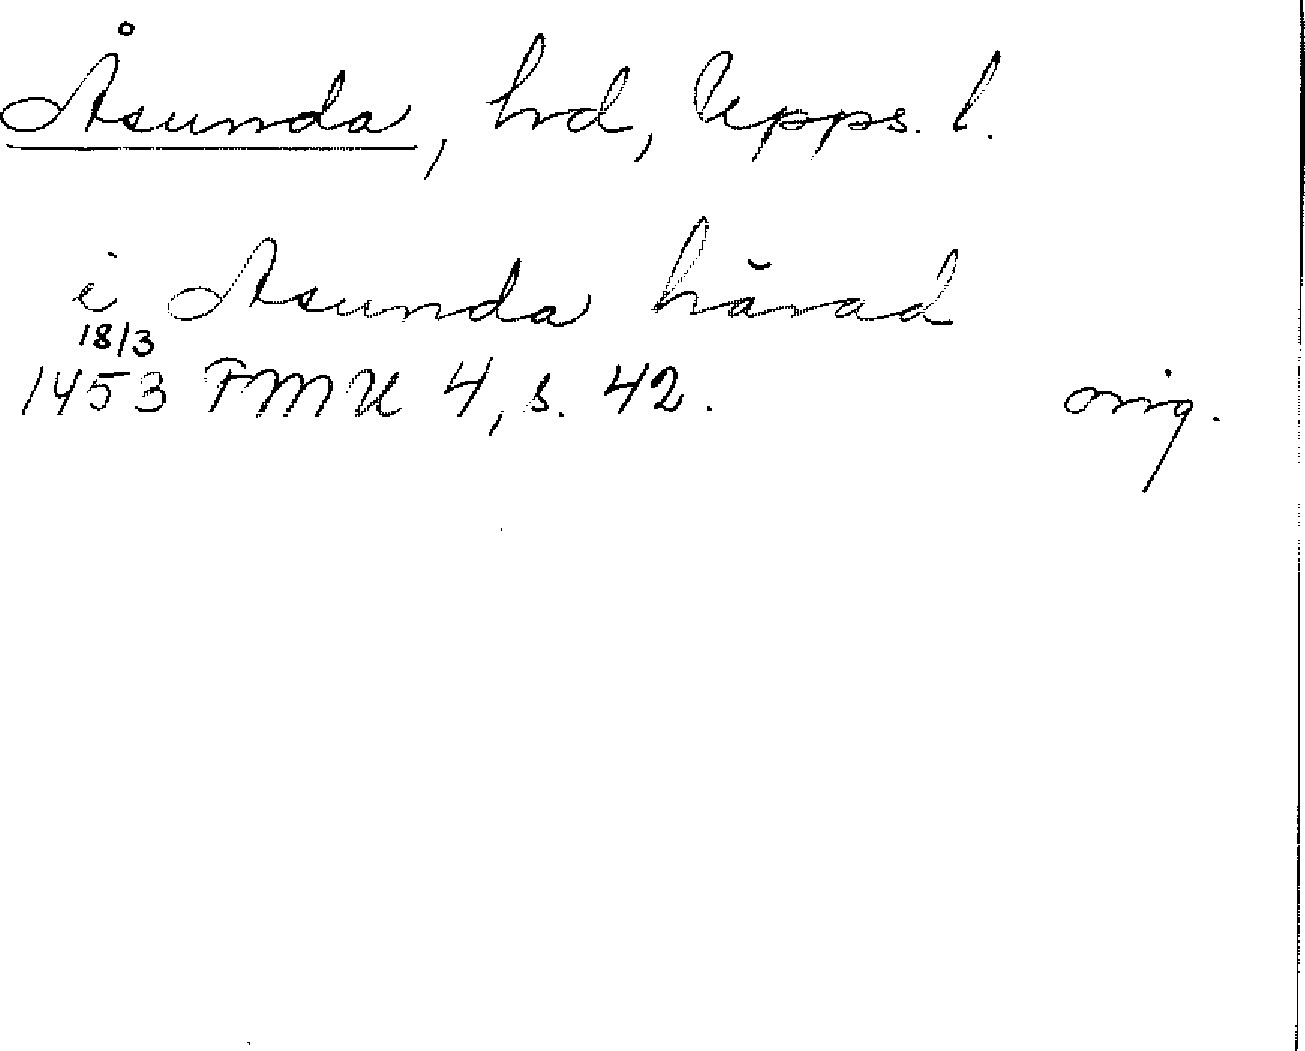 Åsunda, hrd, Upps. l.
i Asunda hărad
18/3
1453 FMU 4, s. 42. orig.